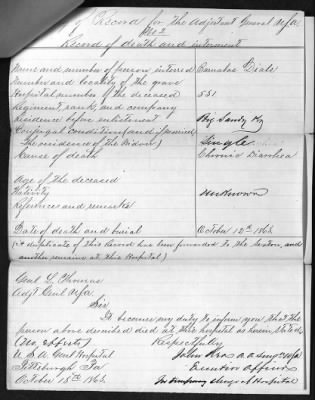 of Record for the Adjutant General U.S.A.
No 2
Record of death and interment
Name and number of person interred
Number and locality of the grave
Hospital number of the deceased 551
Regiment, rank, and company
Residence before enlistment Big Sandy Ky
Conjugal condition (and if married
the residence of the Widow) Single
Cause of death Chronic Diarrhea
Age of the deceased
Nativity Unknown
References and remarks
Date of death and burial October 12th 1863.
(A duplicate of this Record has been forwarded to the Sexton, and
another remains at this Hospital)
Genl L. Thomas
Adjt Genl U.S.A.
Sir
It becomes my duty to inform you that the
person above described died at this hospital as herein stated
(No effects) Respectfully
U.S.A. Genl Hospital John
Pittsburgh Pa
October 15th 1863. In temporary charge of Hospital